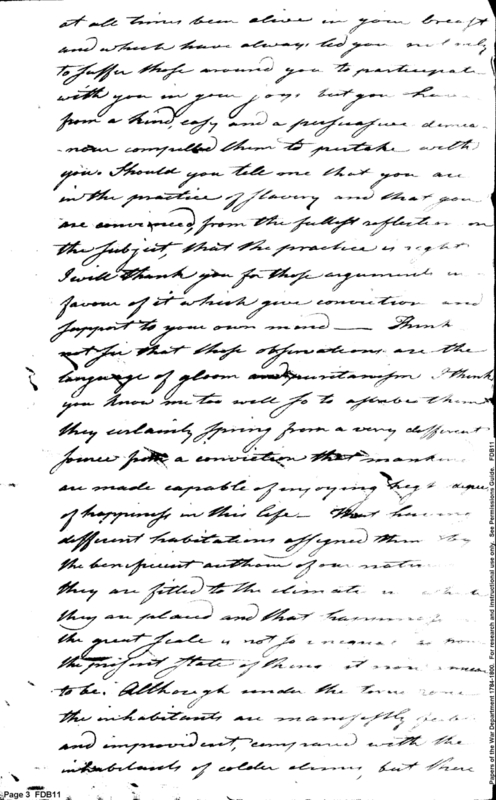 at all times been alive in your breast
and which have always led you not only
to suffer those around you to participate
with you in your joys but you have
from a kind, easy and a persuasive demea
-nour compelled them to partake with
you. Should you tell me that you are
in the practice of slavery and that you
are convinced, from the fullest reflection on
the subject, that the practice is right
I will thank you for those arguments in
favour of it which give conviction and
support to your own mind — Think
not Sir that these observations are the
language of gloom and puritanism I think
you know me too well so to ascribe them
they certainly spring from a very different
source from a conviction that mankind
are made capable of enjoying high degree
of happiness in this life — That having
different habitations assigned them by
the beneficent author of our nature
they are fitted to the climate in which
they are placed and that happiness
the great scale is not so unequal as from
the present state of things it now
to be. Although under the torrid zone
the inhabitants are manifestly
and improvident, compared with the
inhabitants of colder climes, but there
Page 3 FDB11
Papers of the War Department 1784-1800. For research and instructional use only. See Permissions Guide. FDB11